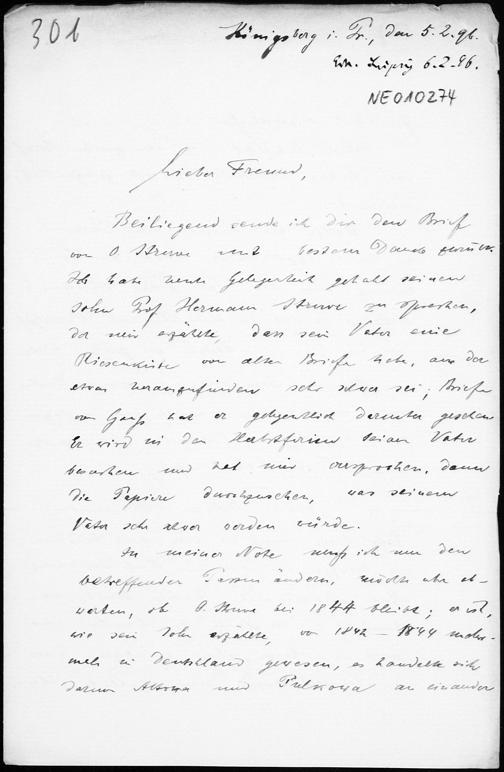 301
Königsberg i. Pr., den 5.2.96.
Erh. Leipzig 6.2.96.
NE010274
Lieber Freund,
Beiliegend sende ich Dir den Brief
von O Struve mit bestem Dank zurück.
Ich habe heute Gelegenheit gehabt seinen
Sohn Prof Hermann Struve zu sprechen,
der mir erzählte, dass sein Vater eine
Riesenkiste von alten Briefe habe, aus der
etwas herauszufinden sehr schwer sei; Briefe
von Gauß hat er gelegentlich darunter gesehen
Er wird in den Herbstferien seinen Vater
besuchen und hat mir versprochen, dann
die Papiere durchzusehen, was seinem
Vater sehr schwer werden würde.
In meiner Note muß ich nun den
betreffenden Passus ändern, möchte aber ab-
warten, ob O. Struve bei 1844 bleibt; er ist,
wie sein Sohn erzählte, von 1842 - 1844 mehr-
mals in Deutschland gewesen, es handelte sich
darum Altona und Pulkowa an einander